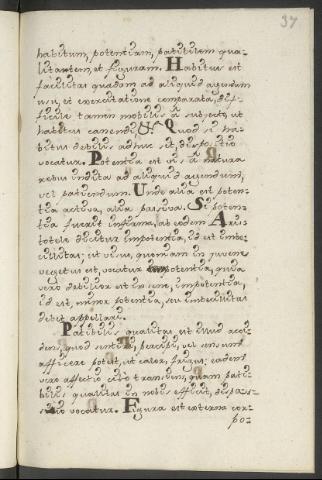 37
habitum, potentiam, patibilem qua-
litatem, et figuram. Habitus est
facilitas quædam ad aliquid agendum
usu, et exercitatione comparata, dif-
ficile tamen mobilis à subjecto, ut
habitus canendi, &c. Quod si ha-
bitus debilis adhuc sit, dispositio
vocatur. Potentia est vis à natura
rebus indita ad aliquid agendum,
vel patiendum. Unde alia est poten-
tia activa, alia passiva. Si poten-
tia fuerit infirma, ab eodem Aris-
totele dicitur impotentia, id est imbe-
cillitas; ut visus, quoniam in juvene
vegetus est, vocatur potentia, quia
vero debilior est in sene, impotentia,
id est, minor potentia, seu imbecillitas
debet appellari.
Patibilis qualitas, est illud acci-
dens, quod sentiri, percipi, vel sensum
afficere potest, ut calor, frigus: eadem
vero affectio cito transiens, quam pati-
bilis qualitas in nobis efficit, dispas-
sitio vocatur. Figura est externa cor-
po-